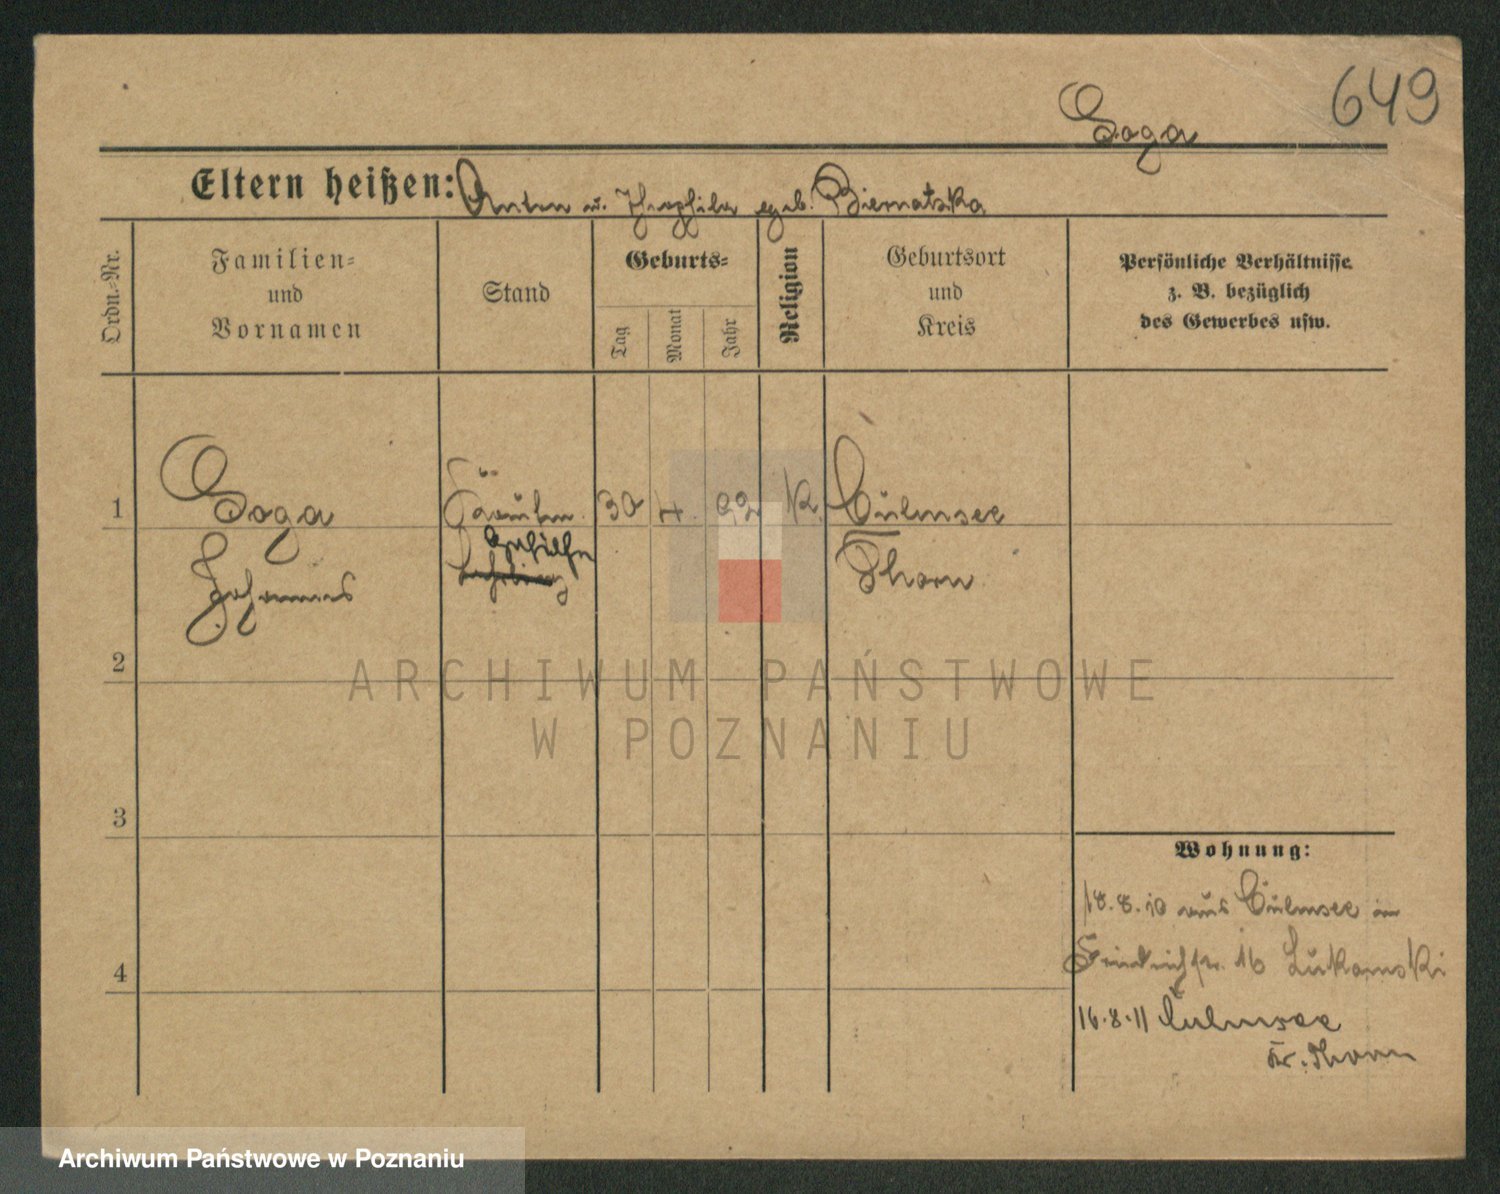 649
Soga
Eltern heißen: Anton u. Theophila geb. Biernatzka
Ordn.-Nr.
Familien-
und
Vornamen
Stand
Geburts-
Tag
Monat
Jahr
Religion
Geburtsort
und
Kreis
Persönliche Verhältnisse
z. B. bezüglich
des Gewerbes usw.
1
Soga
Johannes
Gehilfe
Lehrling
30 4. 92 K.
Culmsee
Thorn
2
3
4
Wohnung:
18.8.10 aus Culmsee in
Friedrichstr. 16 Lukomski
16.8.11 Culmsee
Kr. Thorn
ARCHIWUM PAŃSTWOWE
W POZNANIU
Archiwum Państwowe w Poznaniu